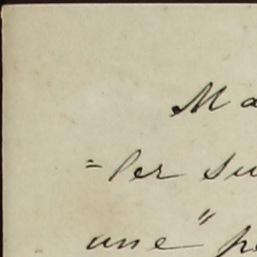 Ma
=ler su
une" pe